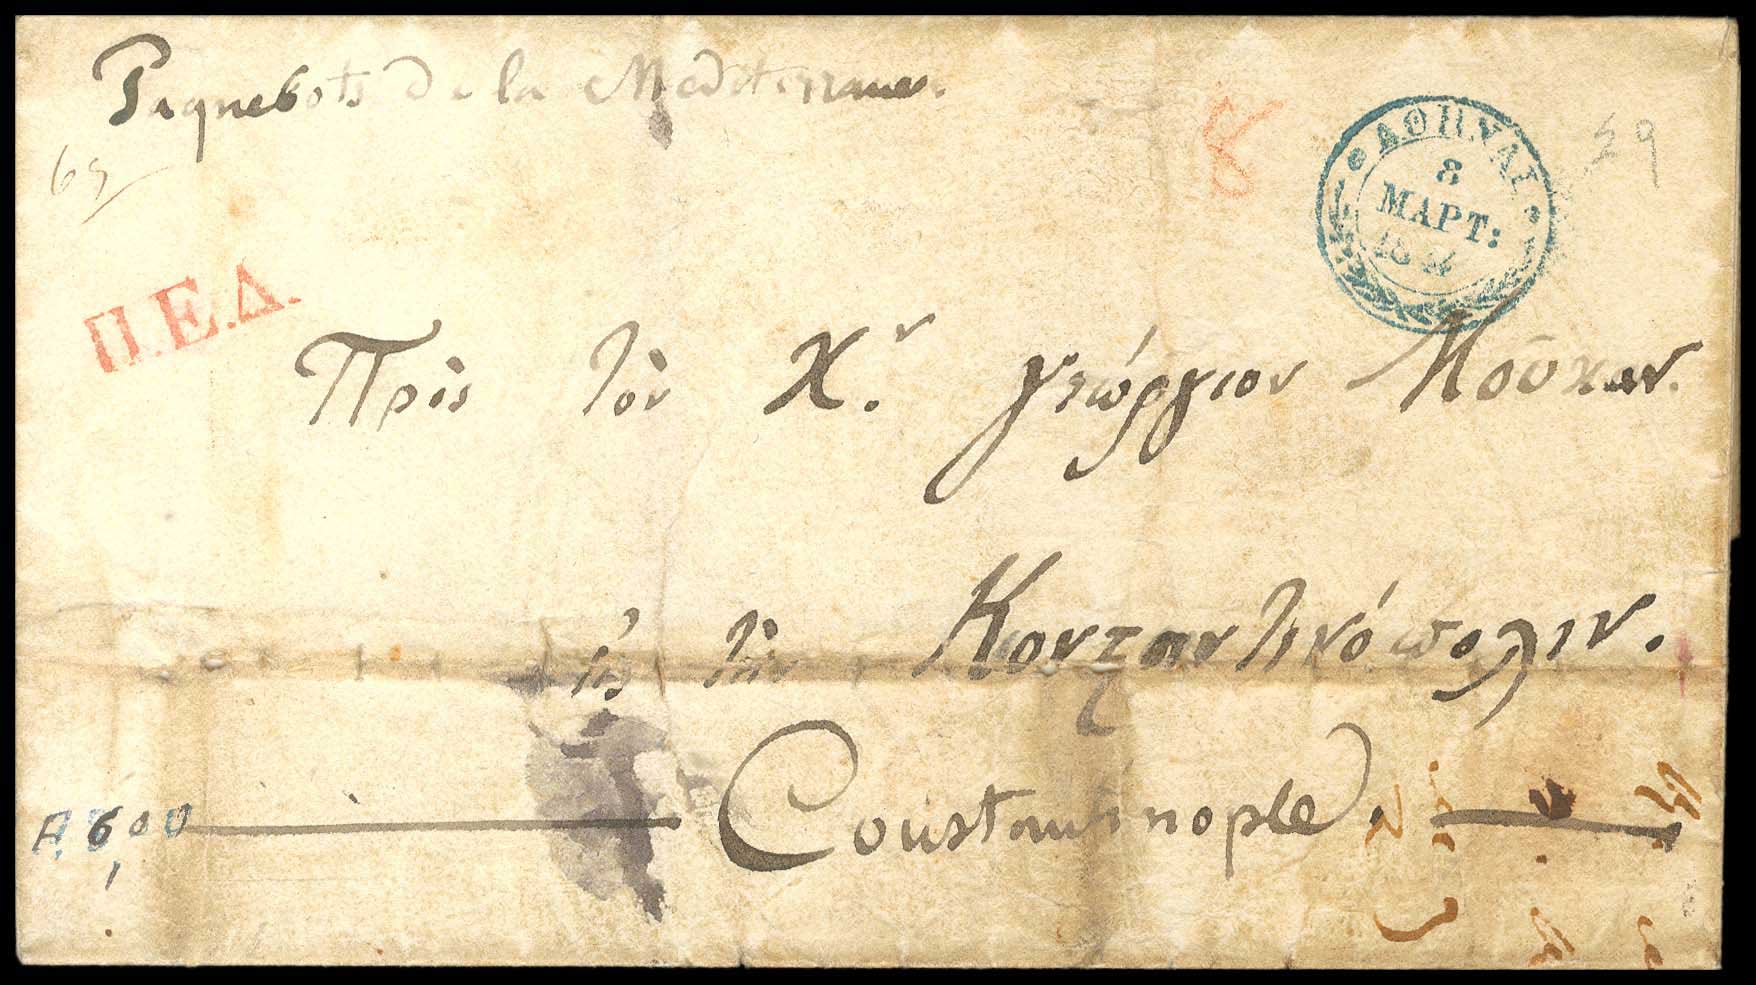 Paquebots de la Mediterranee.
65
8
ΑΘΗΝΑΙ
8
ΜΑΡΤ:
59
Π.Ε.Δ.
Πρὸς τὸν Κ.ν Γεώργιον
εἰς τὴν Κονσταντινόπολιν.
Constantinople.